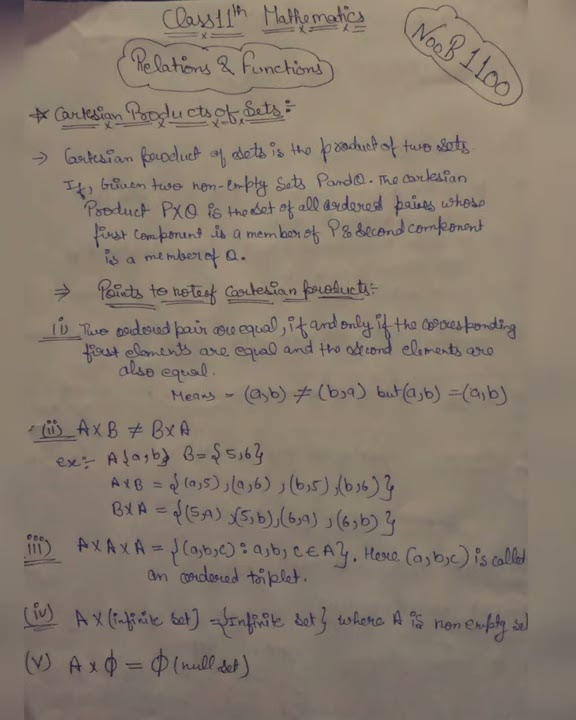 Class 11th Mathematics
NooB 1100
Relations & Functions
* Cartesian Products of Sets:-
→ Cartesian product of sets is the product of two sets.
If, Given two non-empty Sets P and Q. The cartesian
Product P×Q is the set of all ordered pairs whose
first component is a member of P & Second component
is a member of Q.
⇒ Points to note of Cartesian products:-
(i) Two ordered pair are equal, if and only if the corresponding
first elements are equal and the second elements are
also equal.
Means - (a,b) ≠ (b,a) but (a,b) = (a,b)
(ii) A×B ≠ B×A
ex:- A{a,b} B={5,6}
A×B = {(a,5),(a,6),(b,5),(b,6)}
B×A = {(5,a),(5,b),(6,a),(6,b)}
iii) A×A×A = {(a,b,c) : a,b,c ∈ A}. Here (a,b,c) is called
an ordered triplet.
(iv) A×(infinite set) = {Infinite set} where A is non empty se
(v) A×ϕ = ϕ (null set)